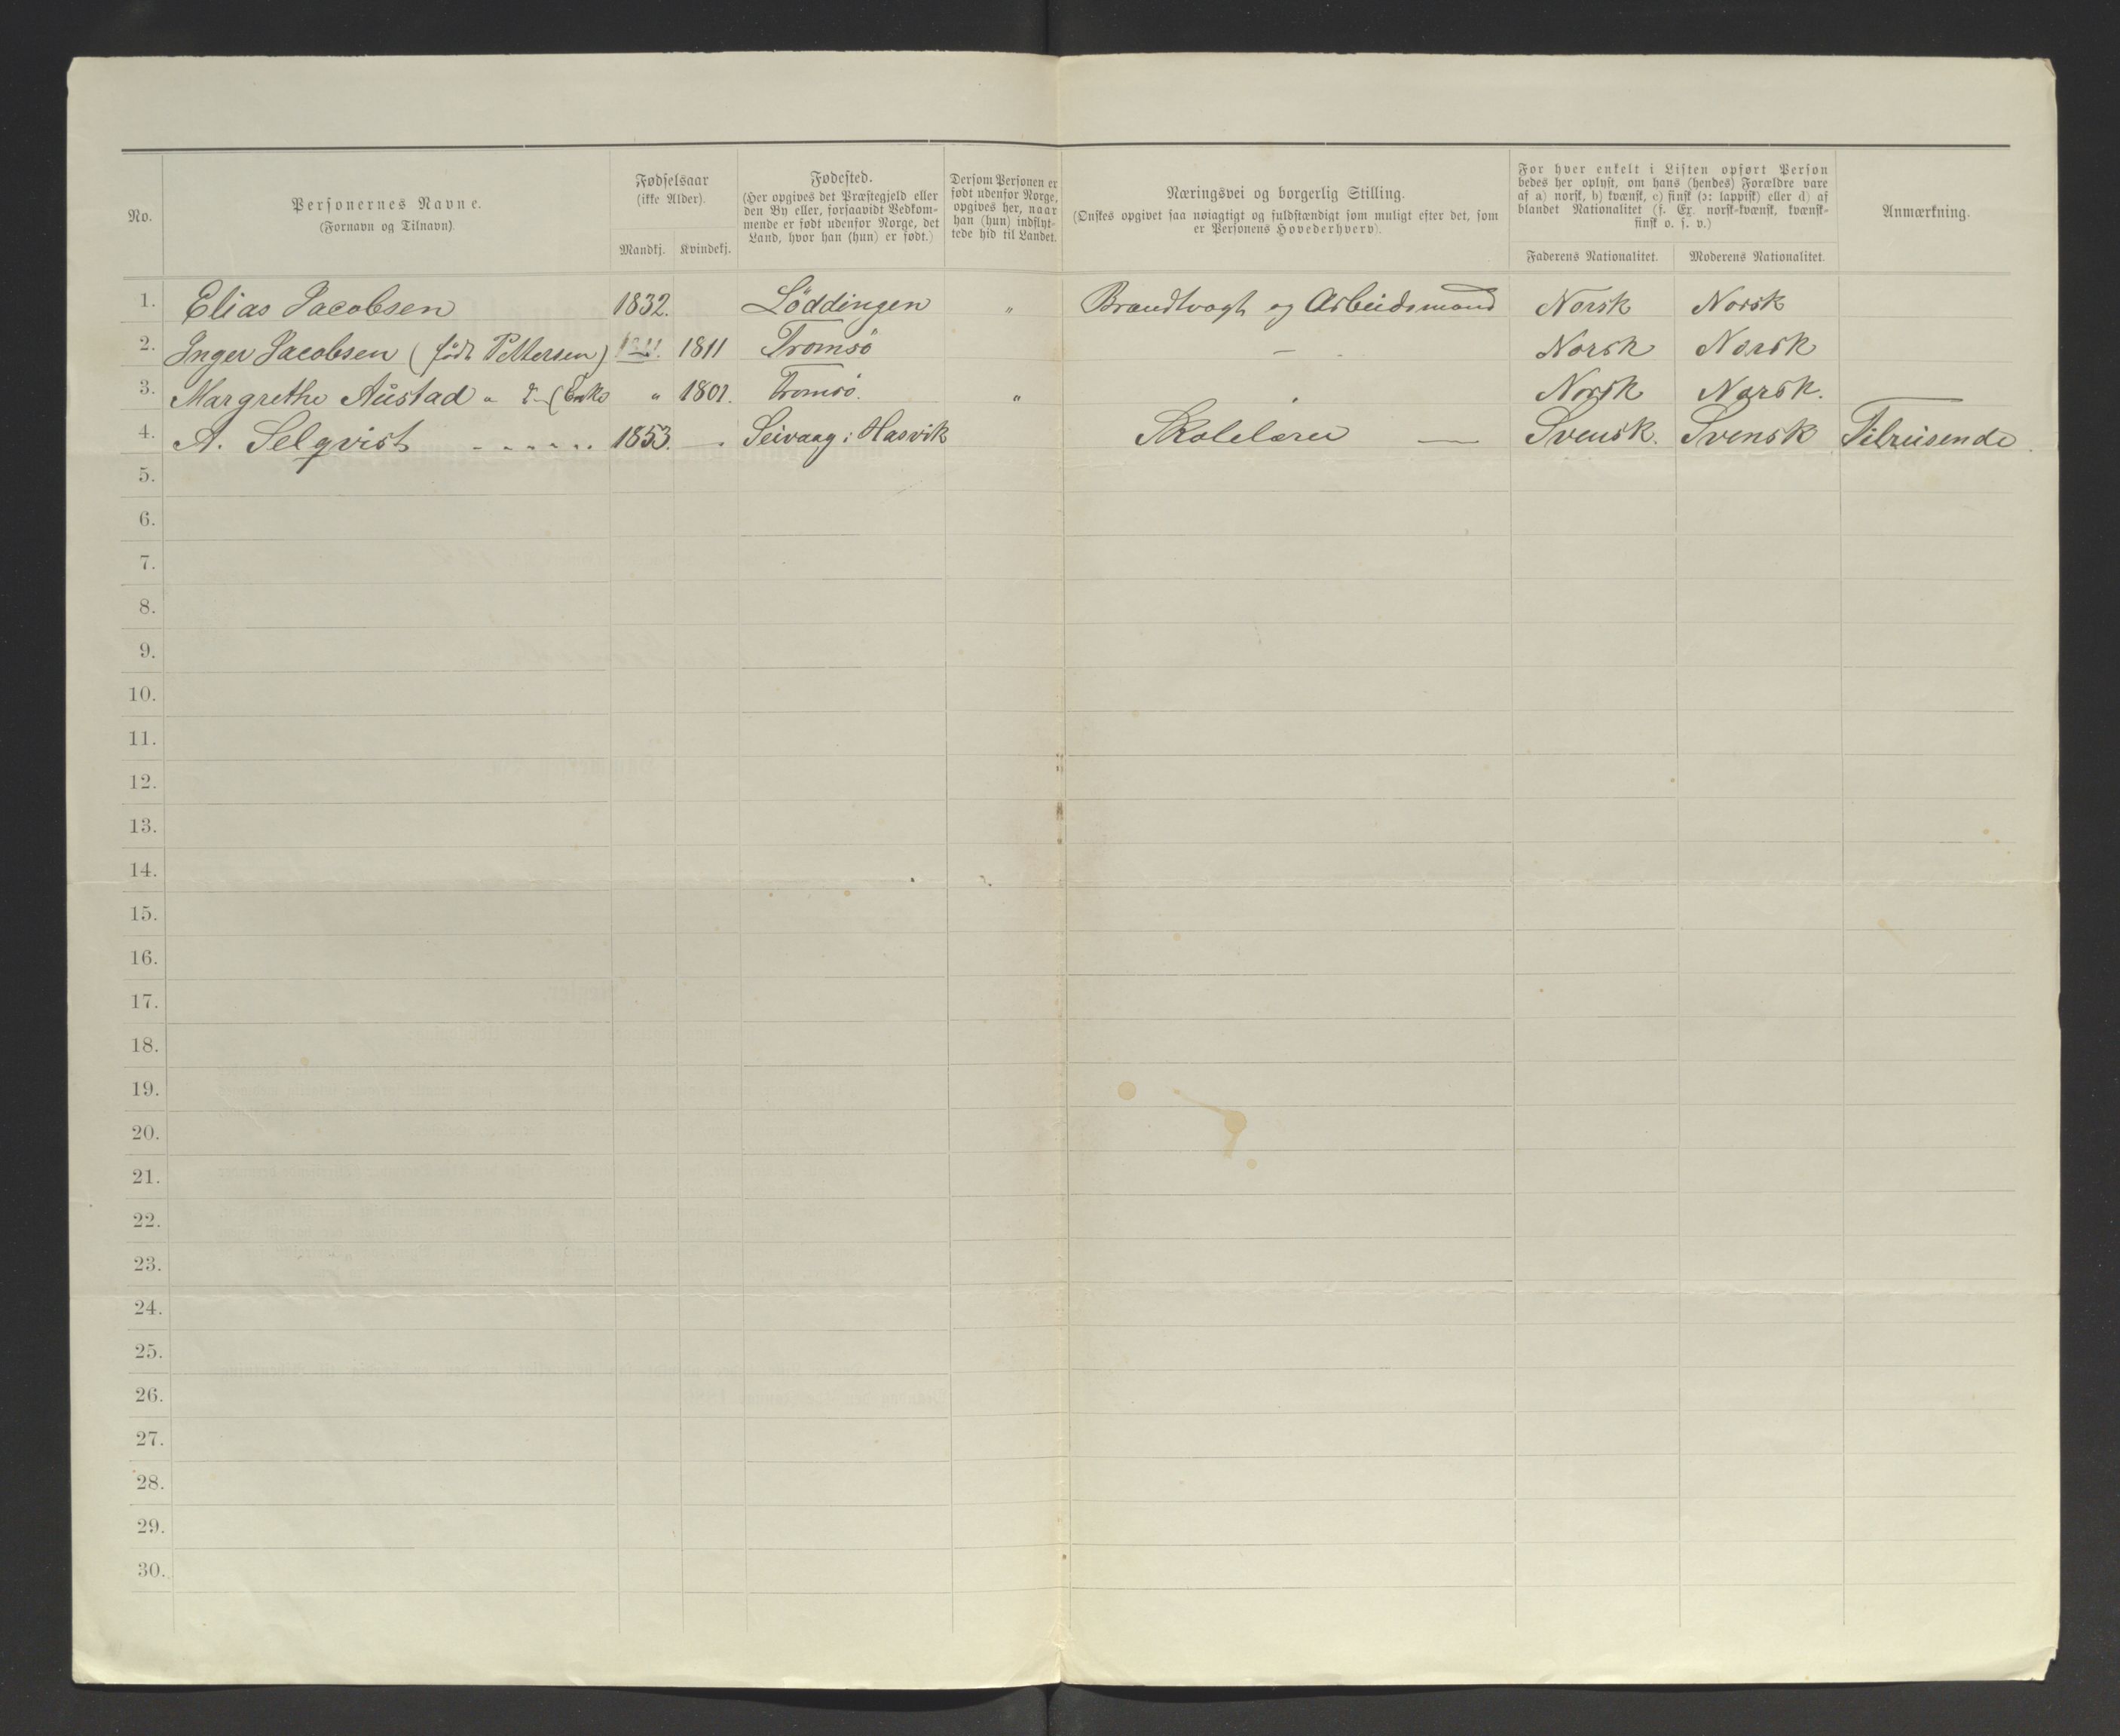 No.
Personernes Navne.
(Fornavn og Tilnavn).
Fødselsaar
(ikke Alder).
Mandkj. Kvindekj.
Fødested.
(Her opgives det Præstegjeld eller
den By eller, forsaavidt Vedkom-
mende er født udenfor Norge, det
Land, hvor han (hun) er født.)
Dersom Personen er
født udenfor Norge,
opgives her, naar
han (hun) indflyt-
tede hid til Landet.
Næringsvei og borgerlig Stilling.
(Ønskes opgivet saa nøiagtigt og fuldstændigt som muligt efter det, som
er Personens Hovederhverv).
For hver enkelt i Listen opført Person
bedes her oplyst, om hans (hendes) Forældre vare
af a) norsk, b) kvænsk, c) finsk (ɔ: lappisk) eller d) af
blandet Nationalitet (f. Ex. norsk-kvænsk, kvænsk-
finsk o. s. v.)
Faderens Nationalitet. Moderens Nationalitet.
Anmærkning.
1. Elias Jacobsen 1832. Löddingen " Brandtvagt og Arbeidsmand Norsk Norsk
2. Inger Jacobsen (født Pettersen) 1811. 1811 Tromsö — Norsk Norsk
3. Margrethe Aüstad " (Enke " 1801. Tromsö. " Norsk Norsk.
4. A. Selqvist 1853. — Seivaag i Hasvik Skolelærer — Svensk. Svensk Tilreisende.
5.
6.
7.
8.
9.
10.
11.
12.
13.
14.
15.
16.
17.
18.
19.
20.
21.
22.
23.
24.
25.
26.
27.
28.
29.
30.